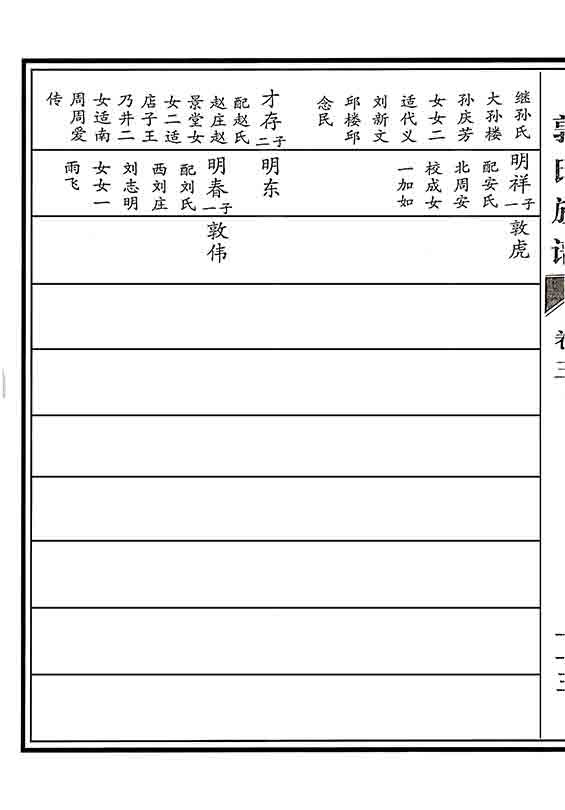 郭氏族谱
卷三
一一三
继孙氏
大孙楼
孙庆芳
女女二
适代义
刘新文
邱楼邱
念民
才存二子
配赵氏
赵庄赵
景堂女
女二适
店子王
乃井二
女适南
周周爱
传
明祥一子
配安氏
北周安
校成女
一加如
明东
明春一子
配刘氏
西刘庄
刘志明
女女一
雨飞
敦虎
敦伟